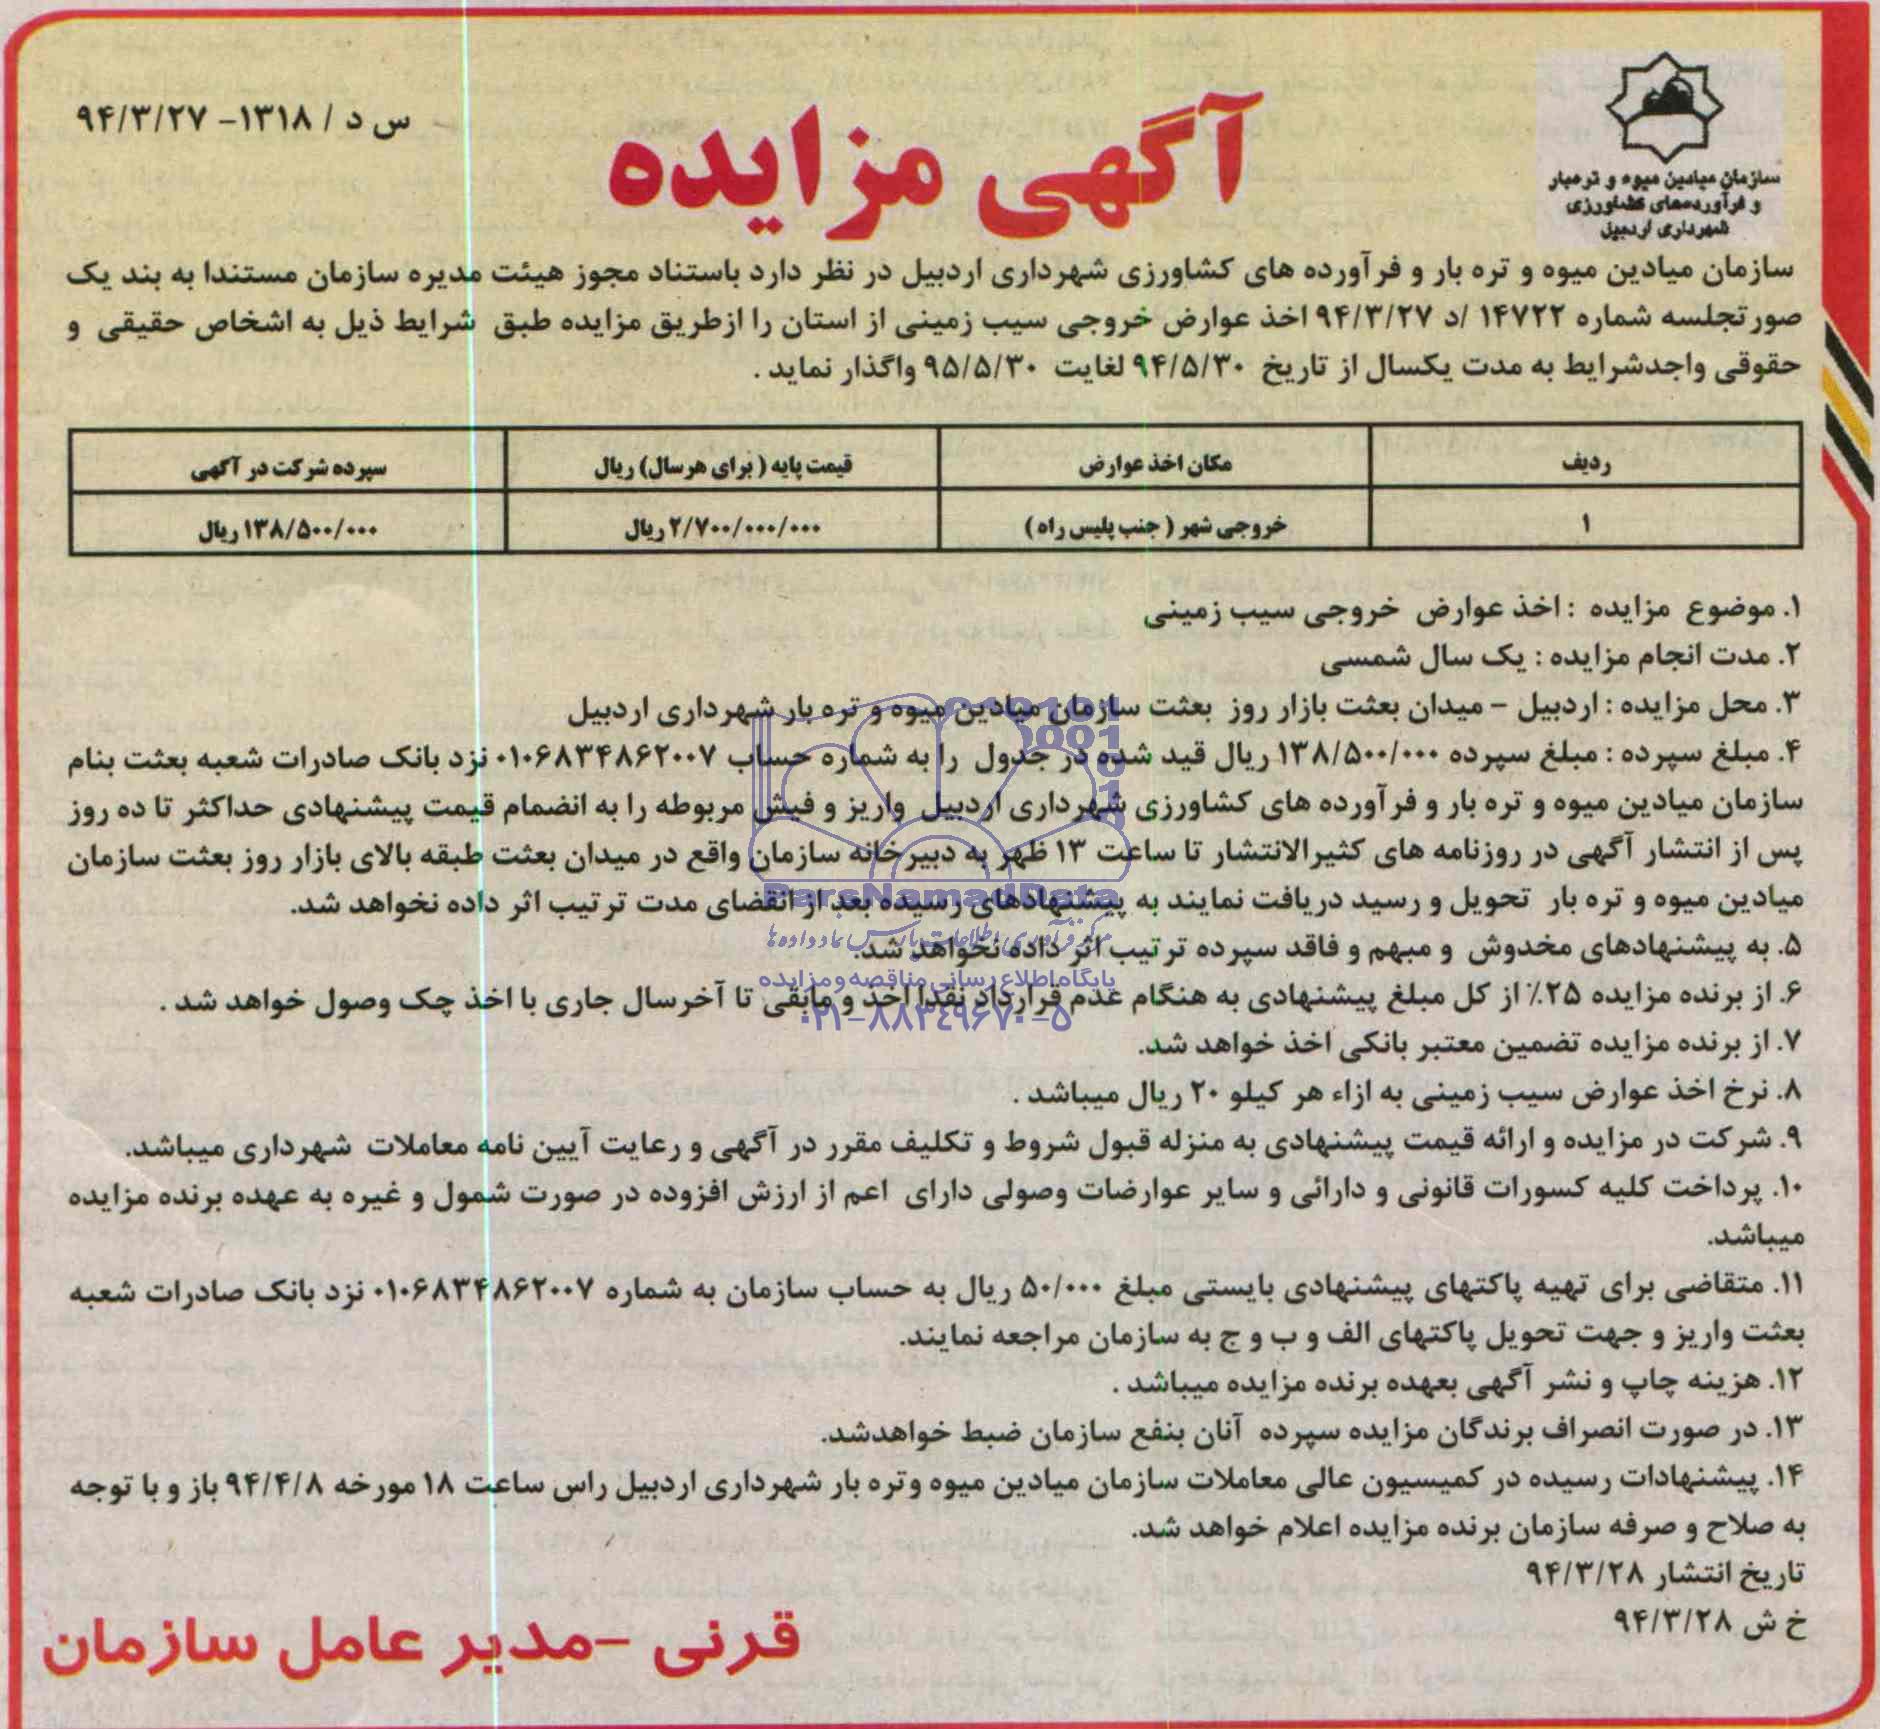 سازمان میادین میوه و تره‌بار
و فرآورده‌های کشاورزی
شهرداری اردبیل
آگهی مزایده
س د / ۱۳۱۸- ۹۴/۳/۲۷
سازمان میادین میوه و تره بار و فرآورده های کشاورزی شهرداری اردبیل در نظر دارد باستناد مجوز هیئت مدیره سازمان مستندا به بند یک
صورتجلسه شماره ۱۴۷۲۲ /د ۹۴/۳/۲۷ اخذ عوارض خروجی سیب زمینی از استان را ازطریق مزایده طبق شرایط ذیل به اشخاص حقیقی و
حقوقی واجدشرایط به مدت یکسال از تاریخ ۹۴/۵/۳۰ لغایت ۹۵/۵/۳۰ واگذار نماید .
ردیف مکان اخذ عوارض قیمت پایه ( برای هرسال) ریال سپرده شرکت در آگهی
۱ خروجی شهر ( جنب پلیس راه ) ۲/۷۰۰/۰۰۰/۰۰۰ ریال ۱۳۸/۵۰۰/۰۰۰ ریال
۱. موضوع مزایده : اخذ عوارض خروجی سیب زمینی
۲. مدت انجام مزایده : یک سال شمسی
۳. محل مزایده : اردبیل – میدان بعثت بازار روز بعثت سازمان میادین میوه و تره بار شهرداری اردبیل
۴. مبلغ سپرده : مبلغ سپرده ۱۳۸/۵۰۰/۰۰۰ ریال قید شده در جدول را به شماره حساب ۰۱۰۶۸۳۴۸۶۲۰۰۷ نزد بانک صادرات شعبه بعثت بنام
سازمان میادین میوه و تره بار و فرآورده های کشاورزی شهرداری اردبیل واریز و فیش مربوطه را به انضمام قیمت پیشنهادی حداکثر تا ده روز
پس از انتشار آگهی در روزنامه های کثیرالانتشار تا ساعت ۱۳ ظهر به دبیرخانه سازمان واقع در میدان بعثت طبقه بالای بازار روز بعثت سازمان
میادین میوه و تره بار تحویل و رسید دریافت نمایند به پیشنهادهای رسیده بعد از انقضای مدت ترتیب اثر داده نخواهد شد.
۵. به پیشنهادهای مخدوش و مبهم و فاقد سپرده ترتیب اثر داده نخواهد شد.
۶. از برنده مزایده ۲۵٪ از کل مبلغ پیشنهادی به هنگام عدم قرارداد نقدا اخذ و مابقی تا آخرسال جاری با اخذ چک وصول خواهد شد .
۷. از برنده مزایده تضمین معتبر بانکی اخذ خواهد شد.
۸. نرخ اخذ عوارض سیب زمینی به ازاء هر کیلو ۲۰ ریال میباشد .
۹. شرکت در مزایده و ارائه قیمت پیشنهادی به منزله قبول شروط و تکلیف مقرر در آگهی و رعایت آیین نامه معاملات شهرداری میباشد.
۱۰. پرداخت کلیه کسورات قانونی و دارائی و سایر عوارضات وصولی دارای اعم از ارزش افزوده در صورت شمول و غیره به عهده برنده مزایده
میباشد.
۱۱. متقاضی برای تهیه پاکتهای پیشنهادی بایستی مبلغ ۵۰/۰۰۰ ریال به حساب سازمان به شماره ۰۱۰۶۸۳۴۸۶۲۰۰۷ نزد بانک صادرات شعبه
بعثت واریز و جهت تحویل پاکتهای الف و ب و ج به سازمان مراجعه نمایند.
۱۲. هزینه چاپ و نشر آگهی بعهده برنده مزایده میباشد .
۱۳. در صورت انصراف برندگان مزایده سپرده آنان بنفع سازمان ضبط خواهدشد.
۱۴. پیشنهادات رسیده در کمیسیون عالی معاملات سازمان میادین میوه وتره بار شهرداری اردبیل راس ساعت ۱۸ مورخه ۹۴/۴/۸ باز و با توجه
به صلاح و صرفه سازمان برنده مزایده اعلام خواهد شد.
تاریخ انتشار ۹۴/۳/۲۸
خ ش ۹۴/۳/۲۸
قرنی –مدیر عامل سازمان
ParsNamadData
مرکز فرآوری اطلاعات پارس نماد داده ها
پایگاه اطلاع رسانی مناقصه و مزایده
۰۲۱-۸۸۳۴۹۶۷۰-۵